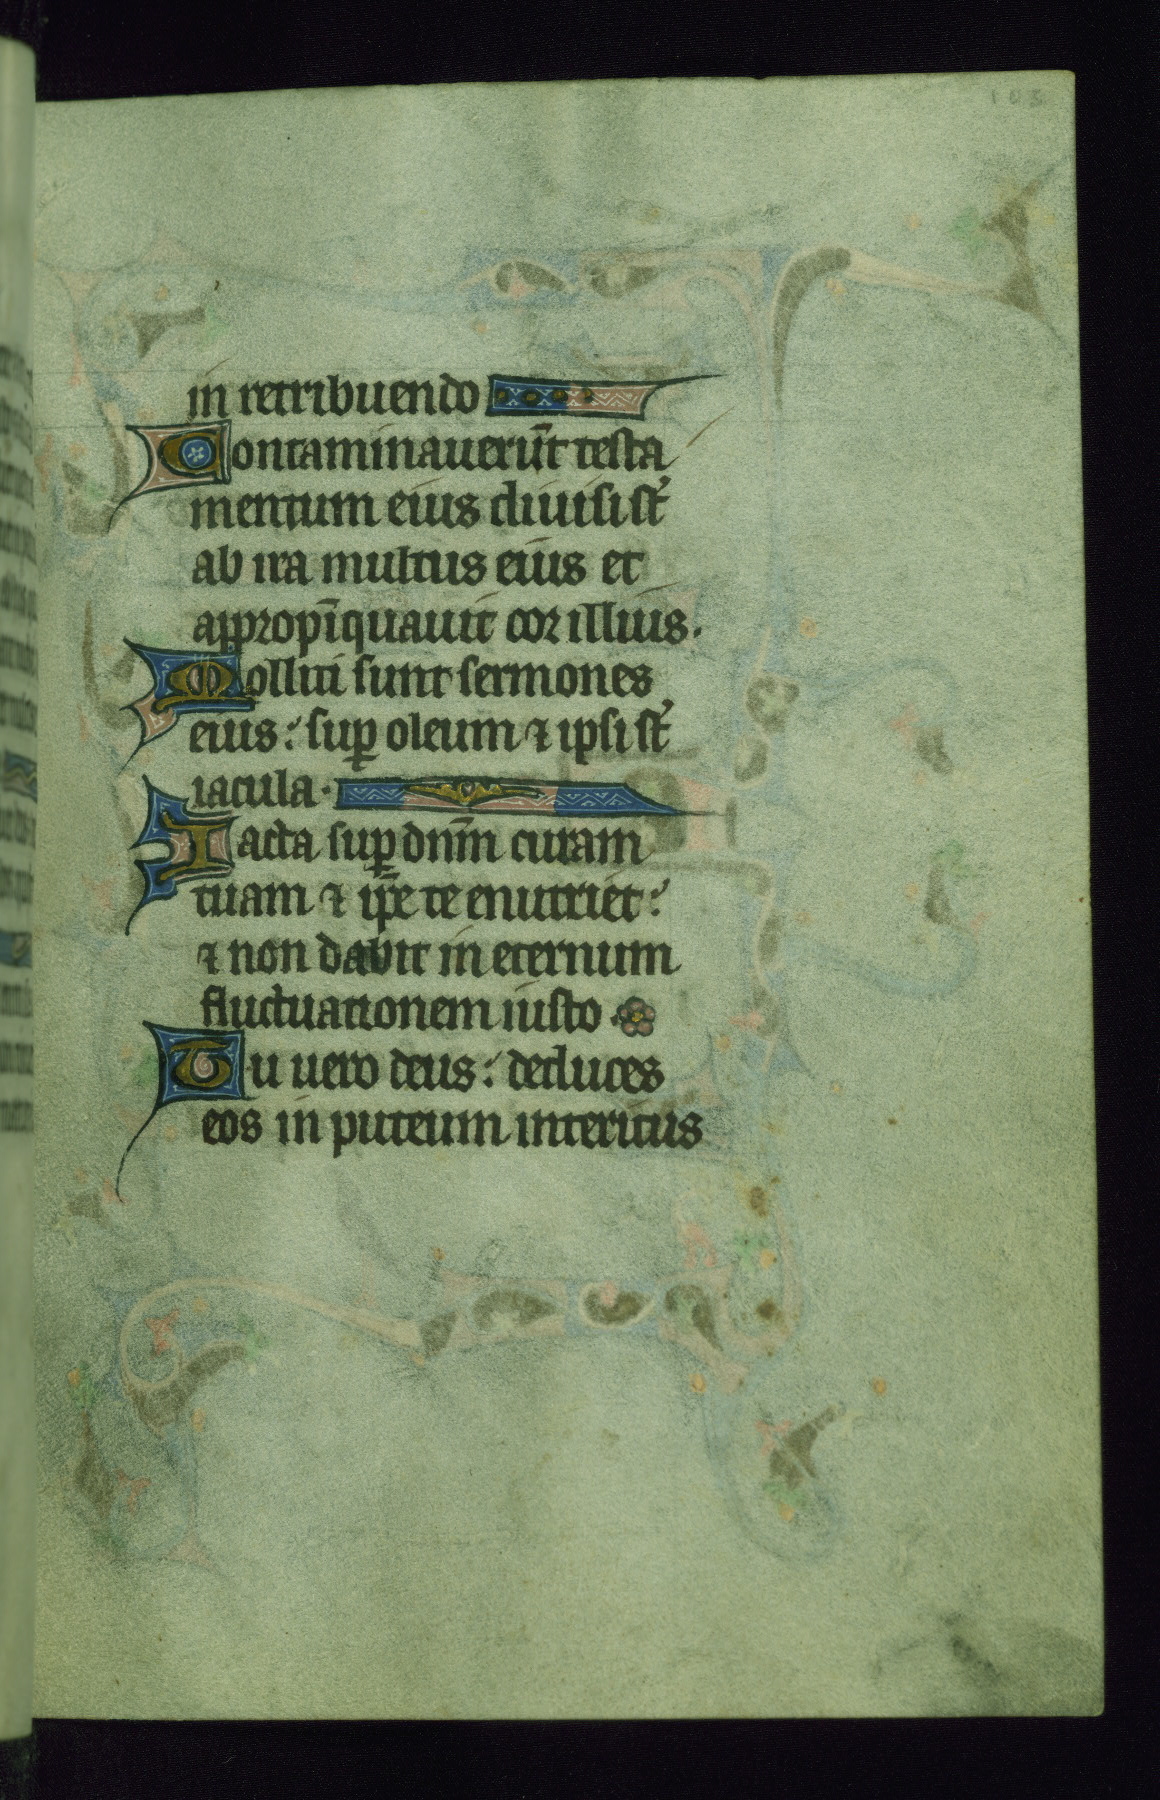 105
in retribuendo
Contaminauerūt testa
mentum eius diuisi st̉
ab ira multus eius et
appropīquauit cor illius.
Molliti sunt sermones
eius: suꝑ oleum ⁊ ipsi st̉
iacula.
Iacta suꝑ dnm̄ curam
tuam ⁊ ip̄e te enutriet:
⁊ non dabit in eternum
fluctuationem iusto.
Tu uero deus: deduces
eos in puteum interitus